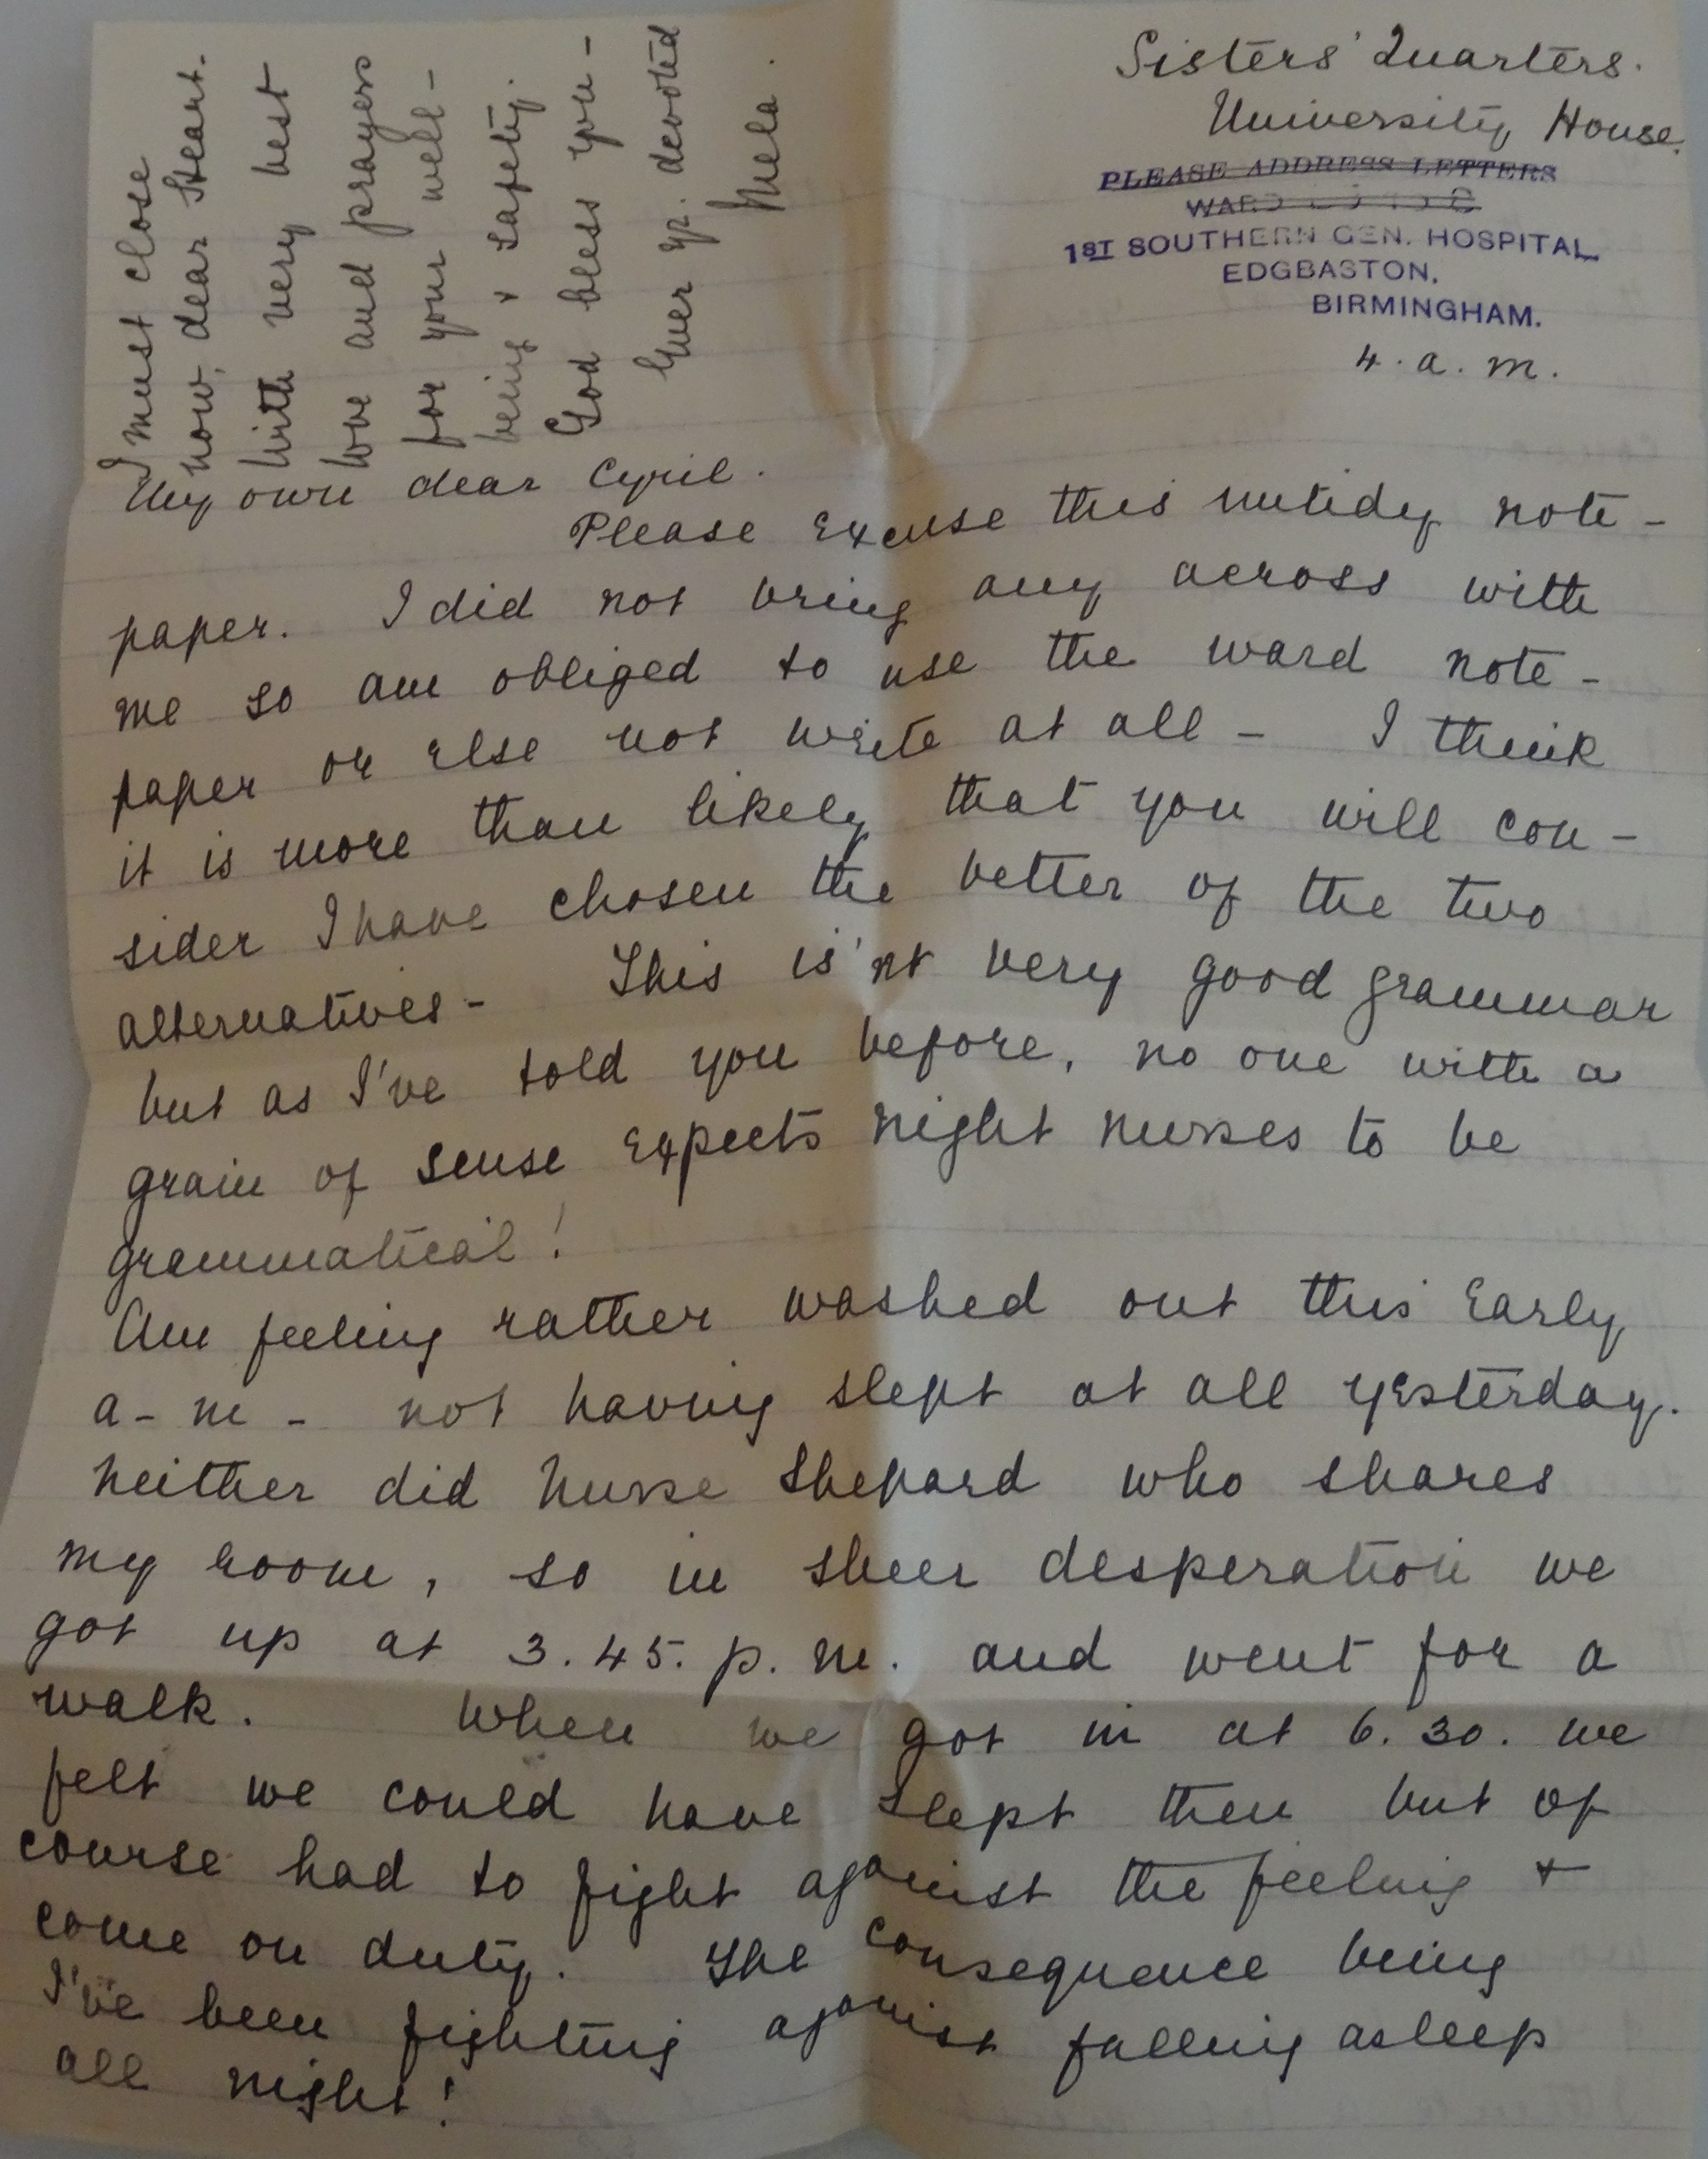 Sisters' Quarters.
University House.
PLEASE ADDRESS LETTERS
WARD
1ST SOUTHERN GEN. HOSPITAL,
EDGBASTON,
BIRMINGHAM.
4. a. m.
My own dear Cyril.
Please excuse this untidy note-
paper. I did not bring any across with
me so am obliged to use the ward note-
paper or else not write at all - I think
it is more than likely that you will con-
sider I have chosen the better of the two
alternatives - This is'nt very good grammar
but as I've told you before, no one with a
grain of sense expects night nurses to be
grammatical!
Am feeling rather washed out this early
a-m- not having slept at all yesterday.
Neither did Nurse Shepard who shares
my room, so in sheer desperation we
got up at 3.45. p.m. and went for a
walk. When we got in at 6.30. we
felt we could have slept then but of
course had to fight against the feeling +
come on duty. The consequence being
I've been fighting against falling asleep
all night!
I must close
now, dear Heart.
With very best
love and prayers
for your well-
being + safety.
God bless you -
Ever yr. devoted
Mela.